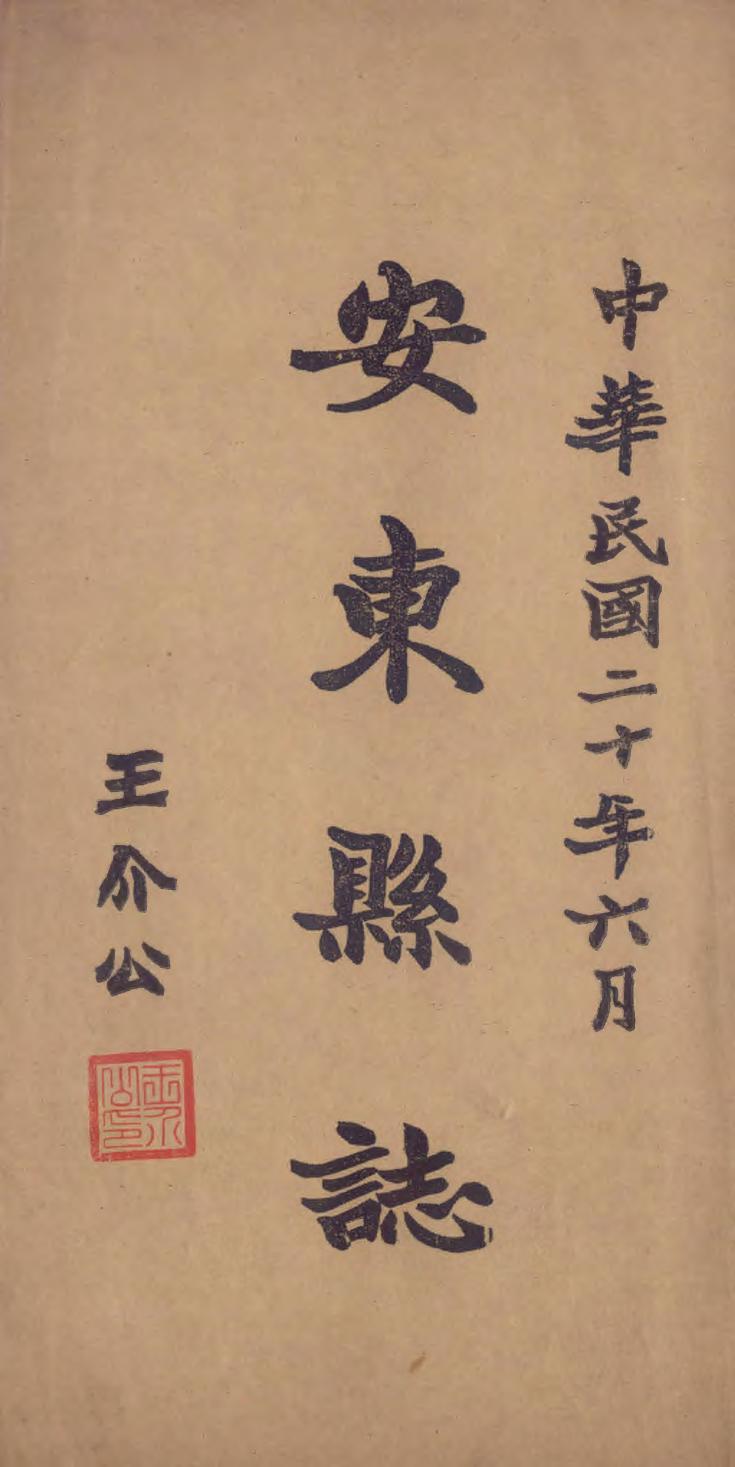 中華民國二十年六月
安東縣誌
王介公
王介公印